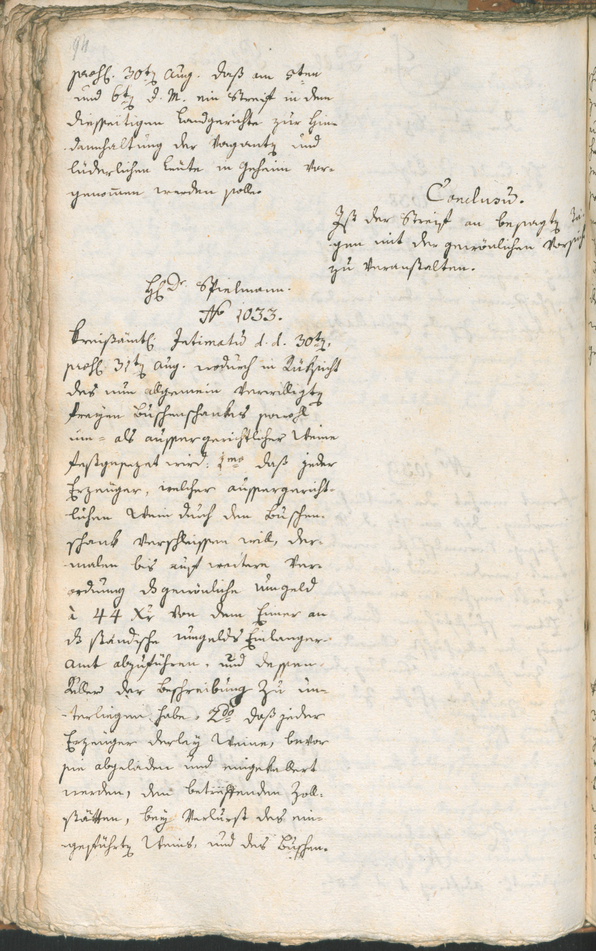 94
praes. 30t Aug. daß am 5ten
und 6t d. M. ein Streif in dem
diesseitigen Landgerichte zur Hin-
dannhaltung der Vaganten und
lüderlichen Leute in Geheim vor-
genommen werden solle.
Conclusū.
Ist der Streif an besagten Tä-
gen mit der gewönlichen Vorsicht
zu veranstalten.
H. Spielmann.
No 1033.
Kreißämtl. Intimatū d. d. 30t,
praes. 31t Aug. wodurch in Rücksicht
des nun allgemein verwilligten
freyen Buschenschankes sowohl
inn- als aussergerichtlicher Weine
festgesezet wird: 1mo daß jeder
Erzeuger, welcher aussergericht-
lichen Wein durch den Buschen-
schank verschleissen will, der-
malen bis auf weitere Ver-
ordnung ds gewönliche Umgeld
à 44 Xr von dem Eimer an
ds ständische Umgelds Einlanger-
amt abzuführen, und dessen
Keller der Beschreibung zu un-
terliegen habe, 2do daß jeder
Erzeuger derley Weine, bevor
sie abgeladen und eingekellert
werden, den betreffenden Zoll-
stätten, bey Verlurst des ein-
geführten Weins, und des Buschen-